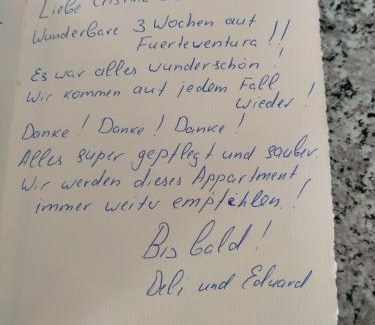 Liebe
Wunderbare 3 Wochen auf
Fuerteventura !!
Es war alles wunderschön !
Wir kommen auf jedem Fall
wieder !
Danke ! Danke ! Danke !
Alles super gepflegt und sauber.
Wir werden dieses Appartment
immer weitv empfehlen !
Bis bald !
Deli und Eduard